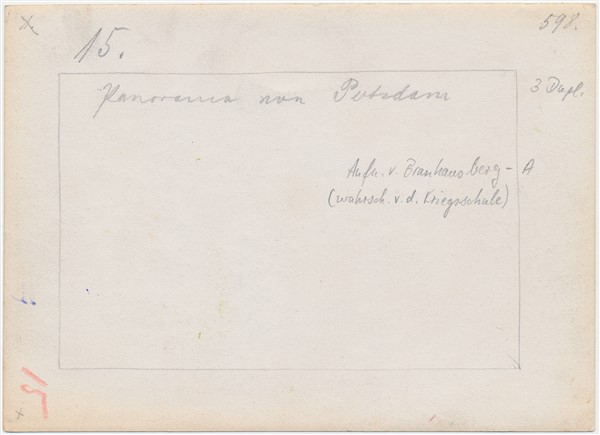 598.
15.
3 Dupl.
Panorama von Potsdam
Aufn. v. Brauhausberg - A
(wahrsch. v. d. Kriegsschule)
15